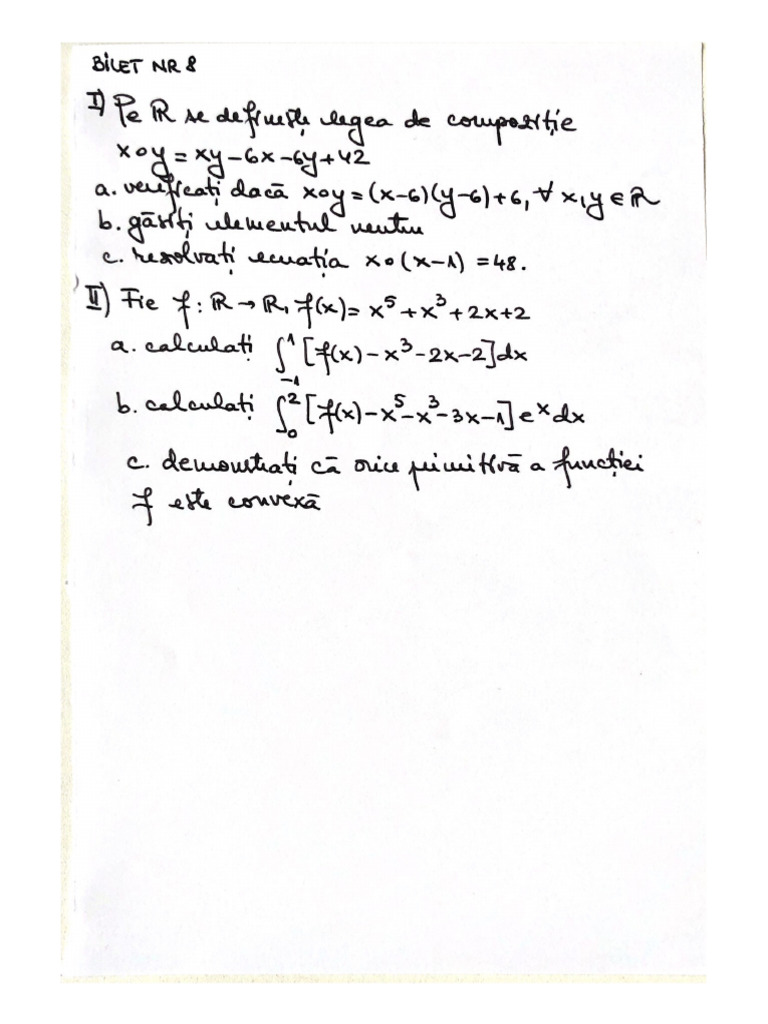 BILET NR 8
I) Pe ℝ se definește legea de compoziție
x∘y = xy-6x-6y+42
a. verificați dacă x∘y = (x-6)(y-6)+6, ∀ x,y ∈ ℝ
b. găsiți elementul neutru
c. rezolvați ecuația x∘(x-1) = 48.
II) Fie f: ℝ → ℝ, f(x) = x⁵+x³+2x+2
a. calculați ∫₋₁¹ [f(x)-x³-2x-2]dx
b. calculați ∫₀² [f(x)-x⁵-x³-3x-1] eˣ dx
c. demonstrați că orice primitivă a funcției
f este convexă